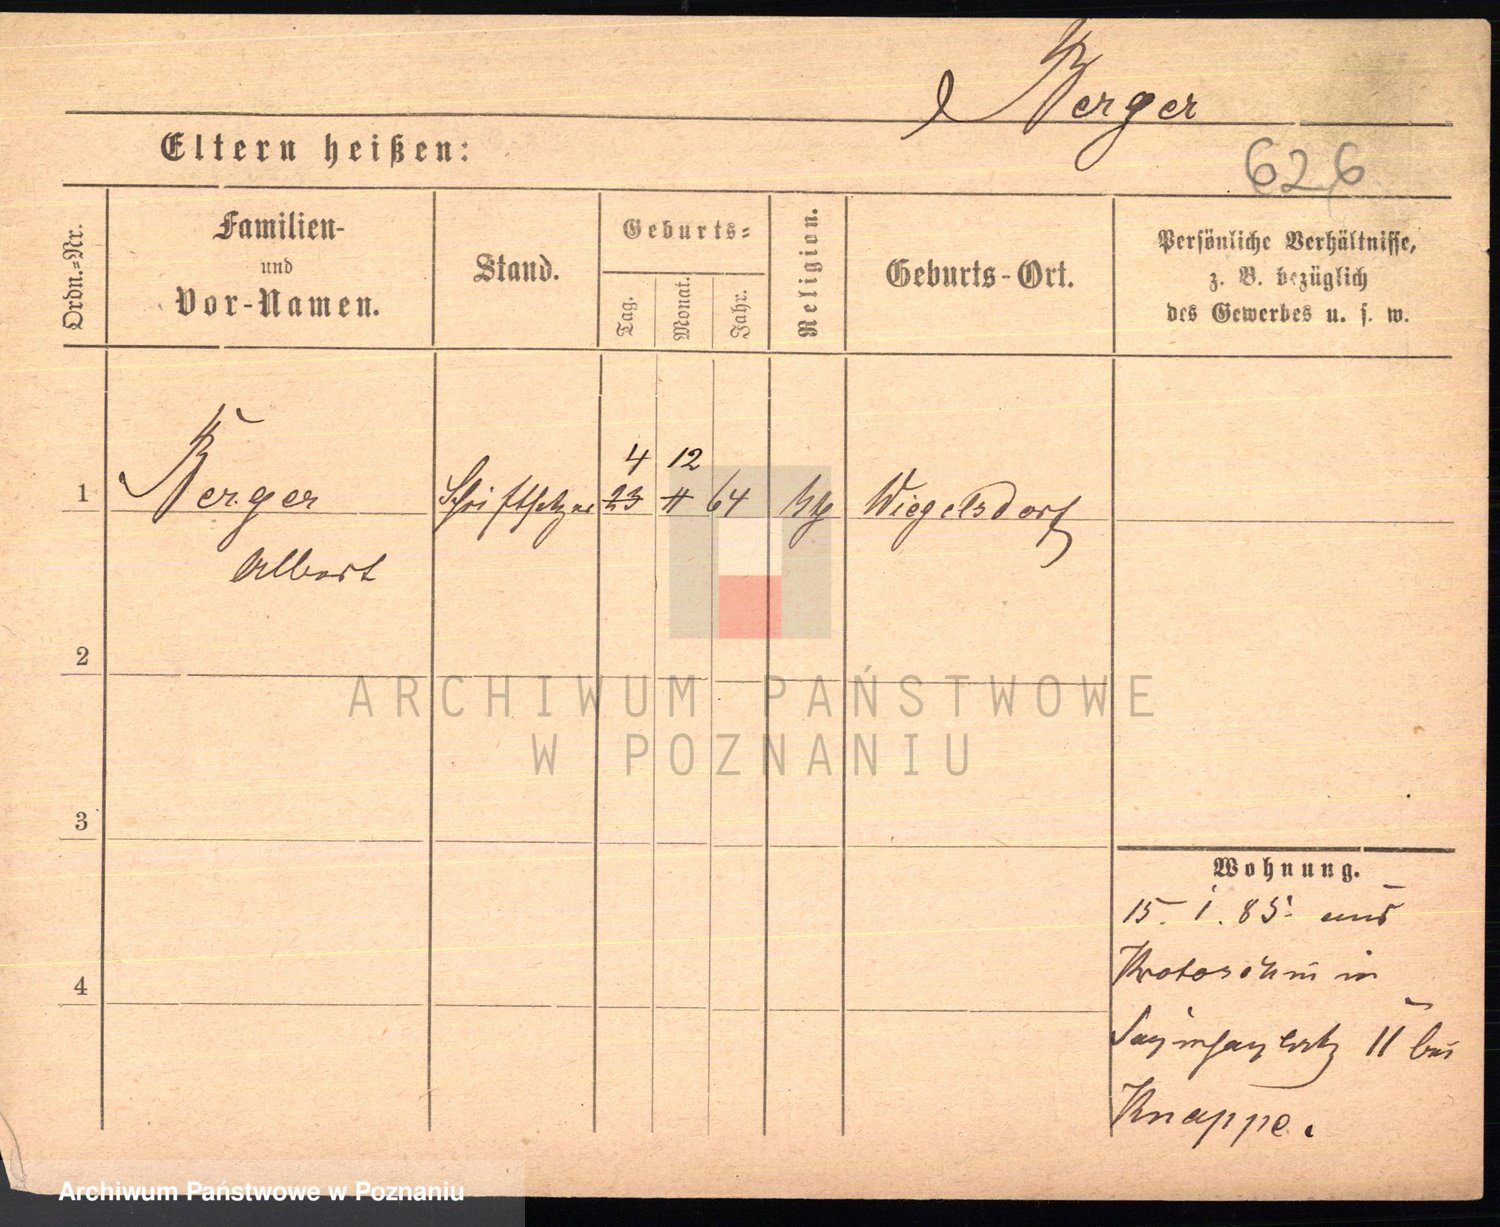 Berger
Eltern heißen:
626
Ordn.=Nr.
Familien-
und
Vor-Namen.
Stand.
Geburts=
Tag.
Monat.
Jahr.
Religion.
Geburts-Ort.
Persönliche Verhältnisse,
z. B. bezüglich
des Gewerbes u. s. w.
4 12
1 Berger Schriftsetzer 23 11 64 Wiegelsdorf
Albert
2
ARCHIWUM PAŃSTWOWE
W POZNANIU
3
Wohnung.
15. 1. 85. aus
Krotoschin in
4
11 bei
Knappe.
Archiwum Państwowe w Poznaniu